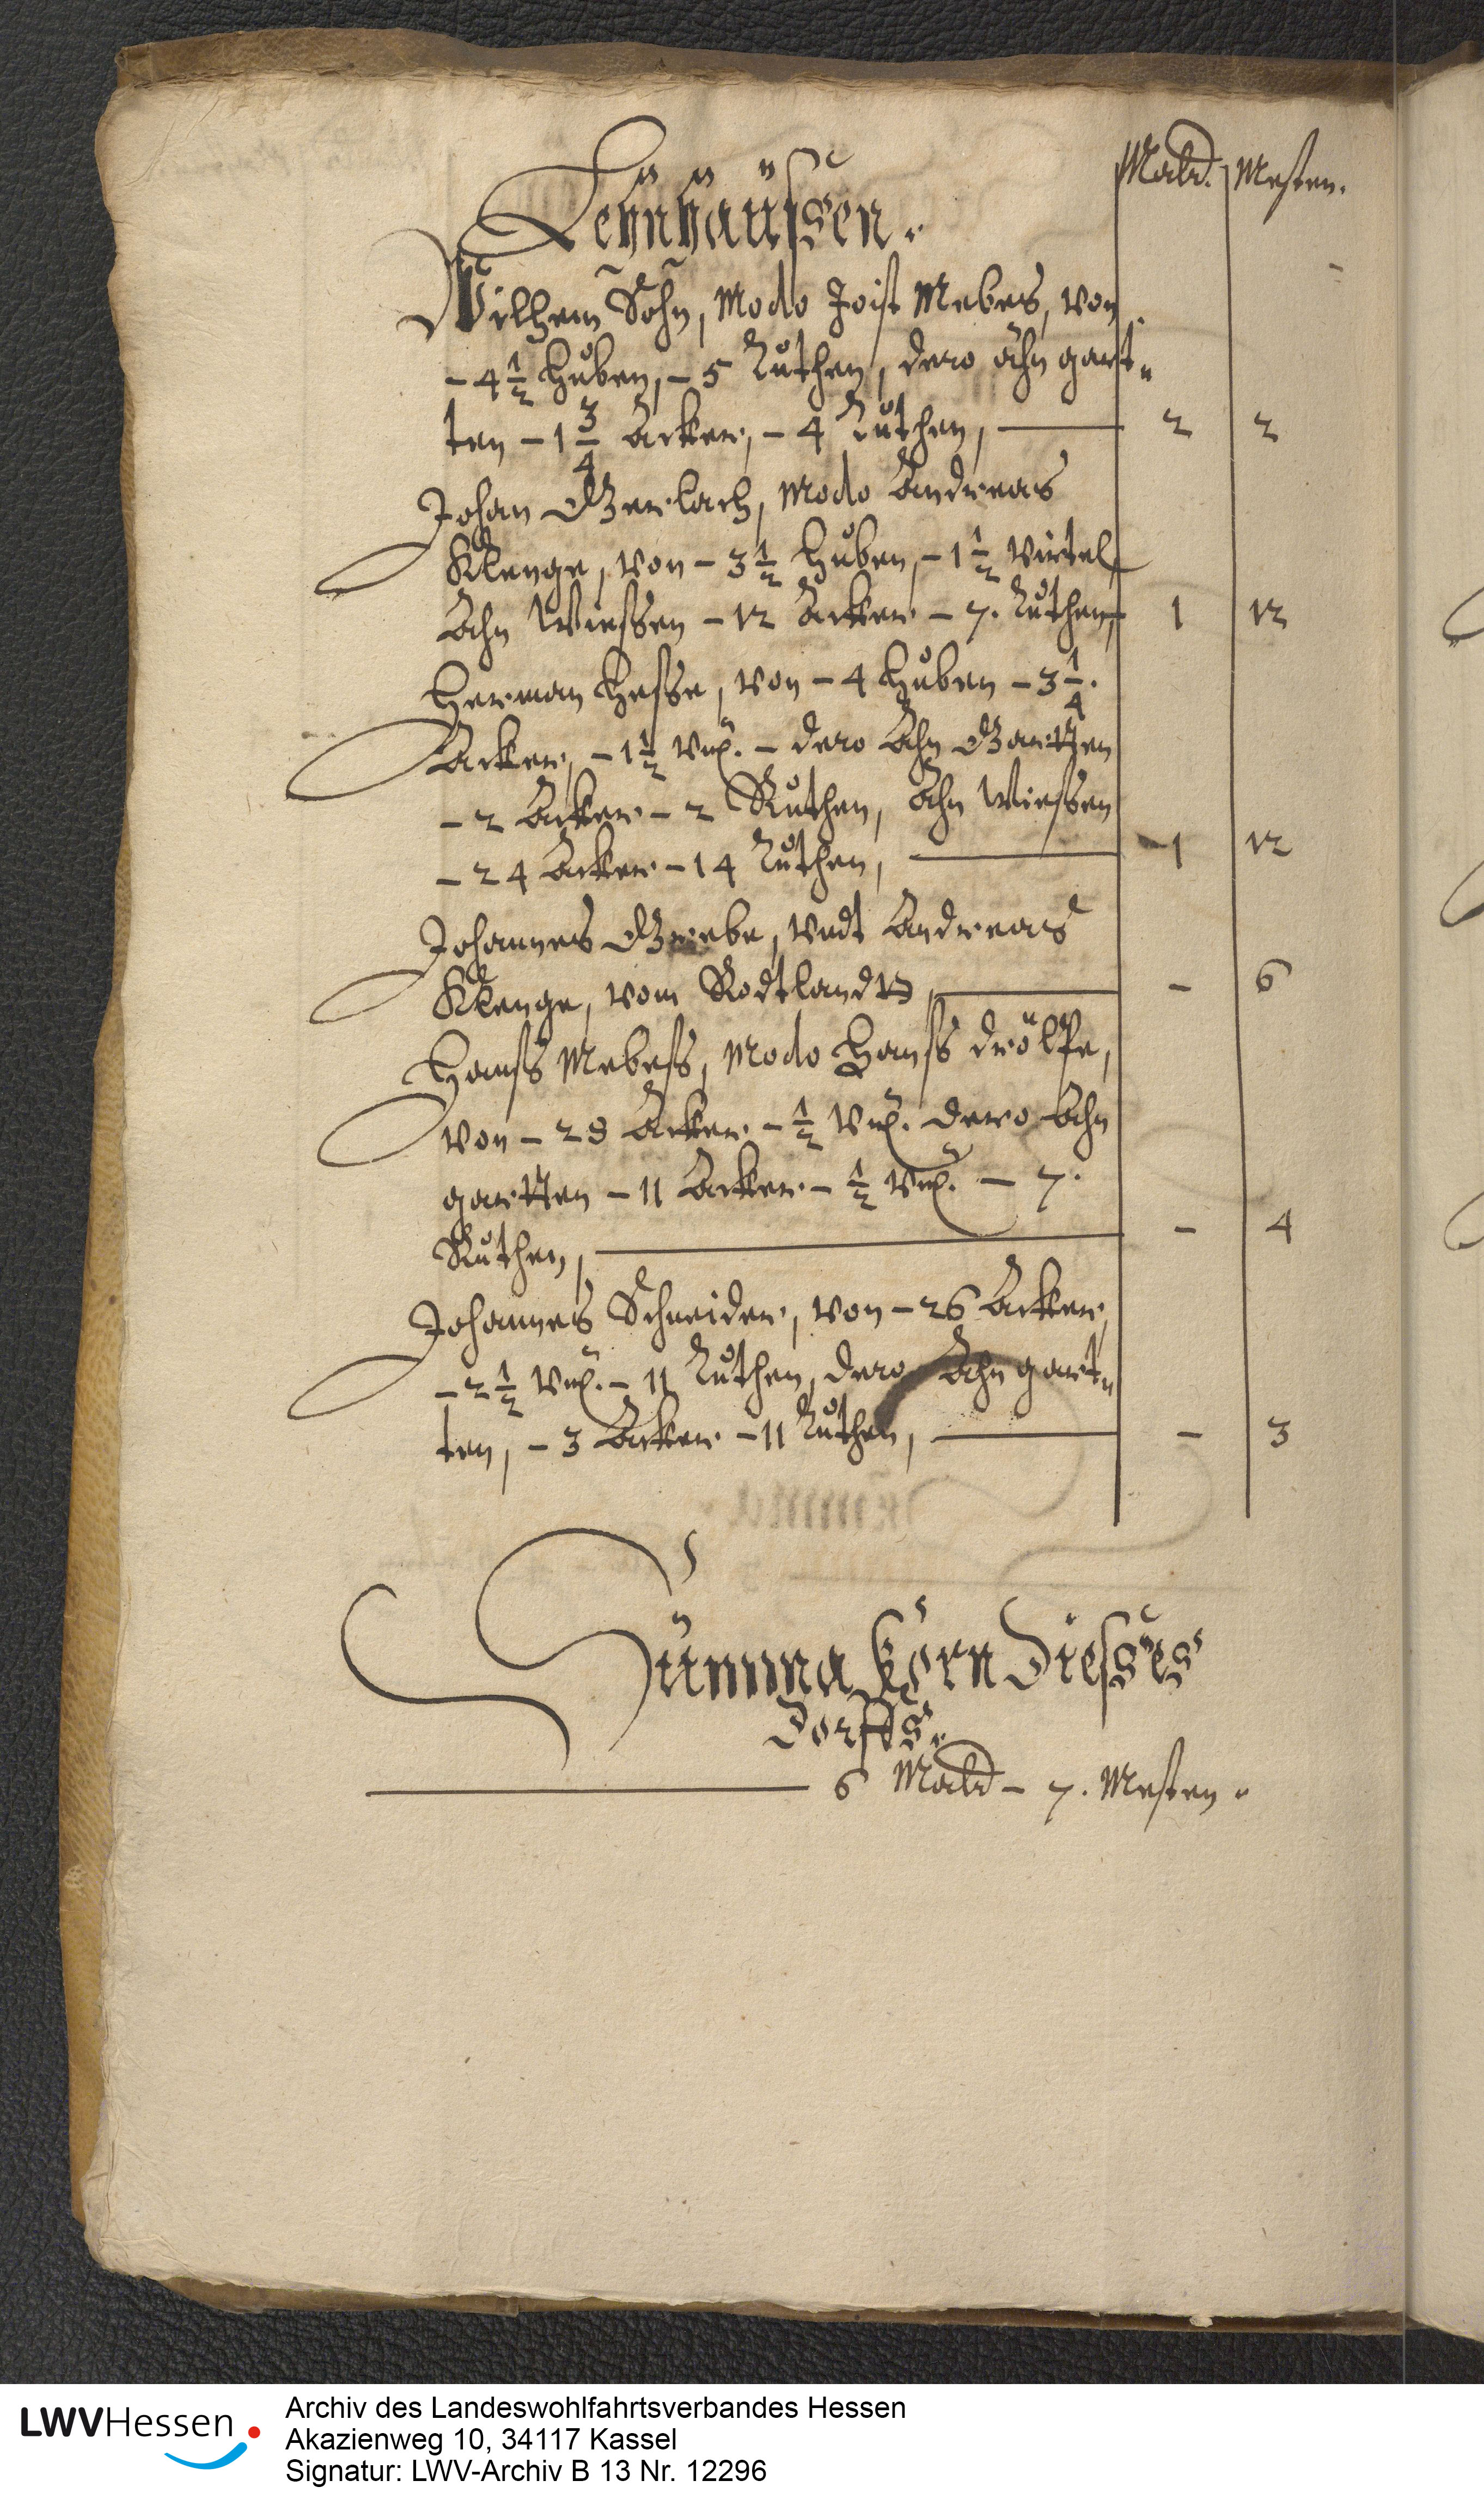 Mald. Mesten.
Lehnhaüssen.
Wilhem Sohn, Modo Joist Mebes, von
- 4 1/2 Huben, - 5 Ruthen, dero ahn gart„
ten - 1 3/4 Acker, - 4 Ruthen, 2 2
Johan Gerlach, Modo Andreas
Klenge, von - 3 1/2 Huben, - 1 1/2 virtel,
Ahn Wiessen - 12 Acker - 7. Ruthen, 1 12
Herman Hesse, von - 4 Huben - 3 1/4.
Acker, - 1 1/2 vir. - dero Ahn Gartten
- 2 Acker - 2 Ruthen, Ahn Wiessen
- 24 Acker - 14 Ruthen, 1 12
Johannes Grebe, vndt Andreas
Klenge, vom Rodtlandt, - 6
Hanss Mebess, Modo Hanss
von - 29 Acker - 1/2 vir. dero Ahn
gartten - 11 Acker - 1/2 vir. - 7.
Ruthen, - 4
Johannes Schneider, von - 26 Acker,
- 2 1/2 vir. - 11 Ruthen, dero Ahn gart„
ten, - 3 Acker - 11 Ruthen, - 3
Summa Korn Diesses
Dorffs.
6 Mald - 7. Mesten.
LWVHessen
Archiv des Landeswohlfahrtsverbandes Hessen
Akazienweg 10, 34117 Kassel
Signatur: LWV-Archiv B 13 Nr. 12296